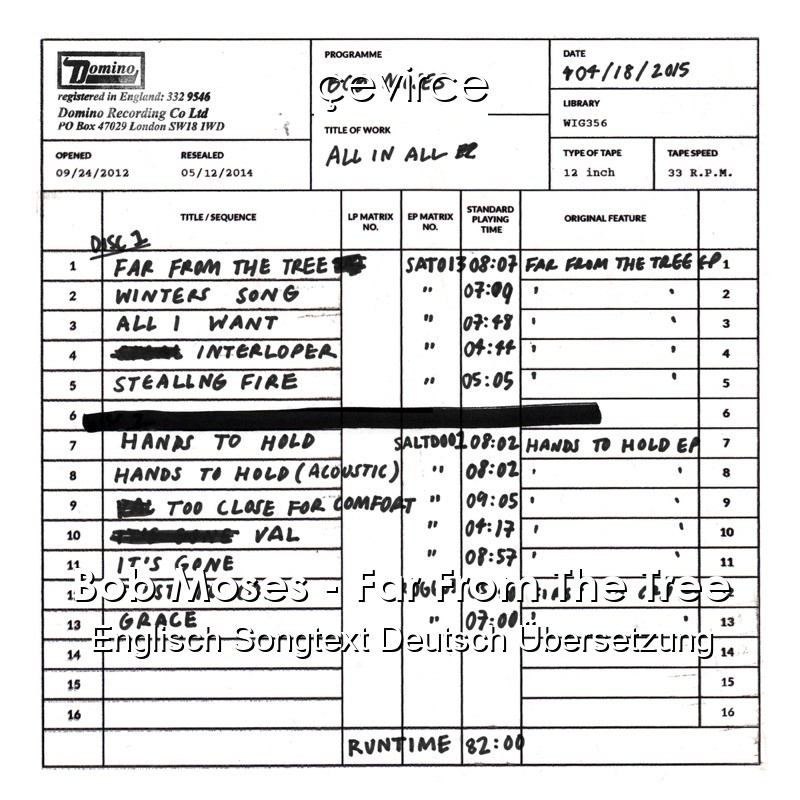 Domino
registered in England: 332 9546
Domino Recording Co Ltd
PO Box 47029 London SW18 1WD
OPENED RESEALED
09/24/2012 05/12/2014
PROGRAMME
çevirce
TITLE OF WORK
ALL IN ALL
DATE
04/18/2015
LIBRARY
WIG356
TYPE OF TAPE TAPE SPEED
12 inch 33 R.P.M.
TITLE / SEQUENCE LP MATRIX NO. EP MATRIX NO. STANDARD PLAYING TIME ORIGINAL FEATURE
DISC 1
1 FAR FROM THE TREE SAT013 08:07 FAR FROM THE TREE EP 1
2 WINTERS SONG " 07:09 ' ' 2
3 ALL I WANT " 07:48 ' ' 3
4 INTERLOPER " 04:44 ' ' 4
5 STEALING FIRE " 05:05 ' ' 5
6 6
7 HANDS TO HOLD SALTD001 08:02 HANDS TO HOLD EP 7
8 HANDS TO HOLD (ACOUSTIC) " 08:02 ' ' 8
9 TOO CLOSE FOR COMFORT " 09:05 ' ' 9
10 VAL " 04:17 ' ' 10
11 IT'S GONE " 08:57 ' ' 11
Bob Moses - Far From The Tree
13 GRACE " 07:00 " ' 13
Englisch Songtext Deutsch Übersetzung
14 14
15 15
16 16
RUNTIME 82:00